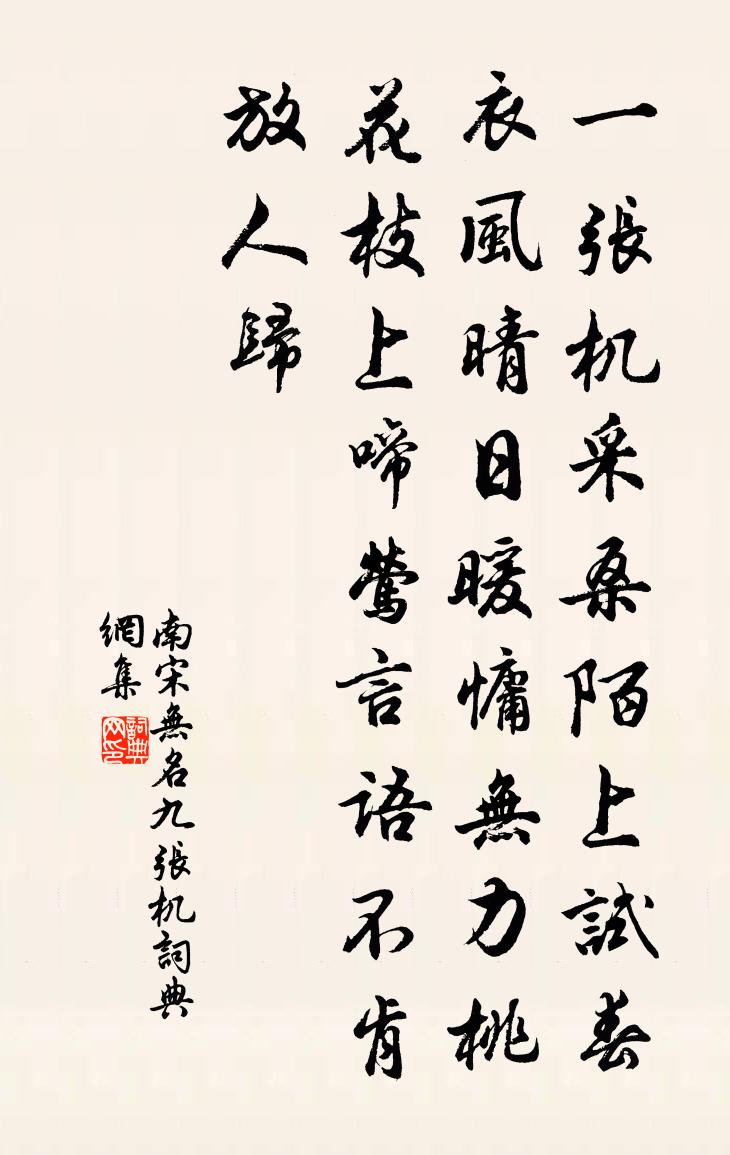 一張机采桑陌上試春
衣風晴日暖慵無力桃
花枝上啼鶯言語不肯
放人歸
南宋無名九張机詞典
網集
詞典
网印